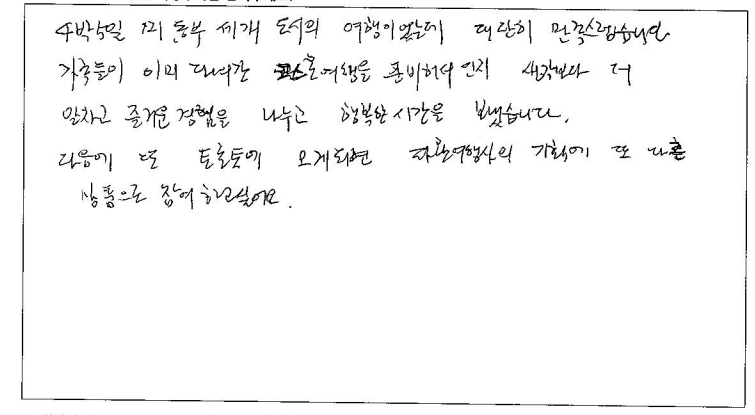 4박5일 미 동부 세개 도시의 여행이었는데 대단히 만족스럽습니다.
가족들이 이미 다녀간 코스로 여행을 준비해서 인지 생각보다 더
알차고 즐거운 경험을 나누고 행복한 시간을 보냈습니다.
다음에 또 토론토에 오게되면 여행사의 기획에 또 다른
상품으로 참여 하고싶어요.